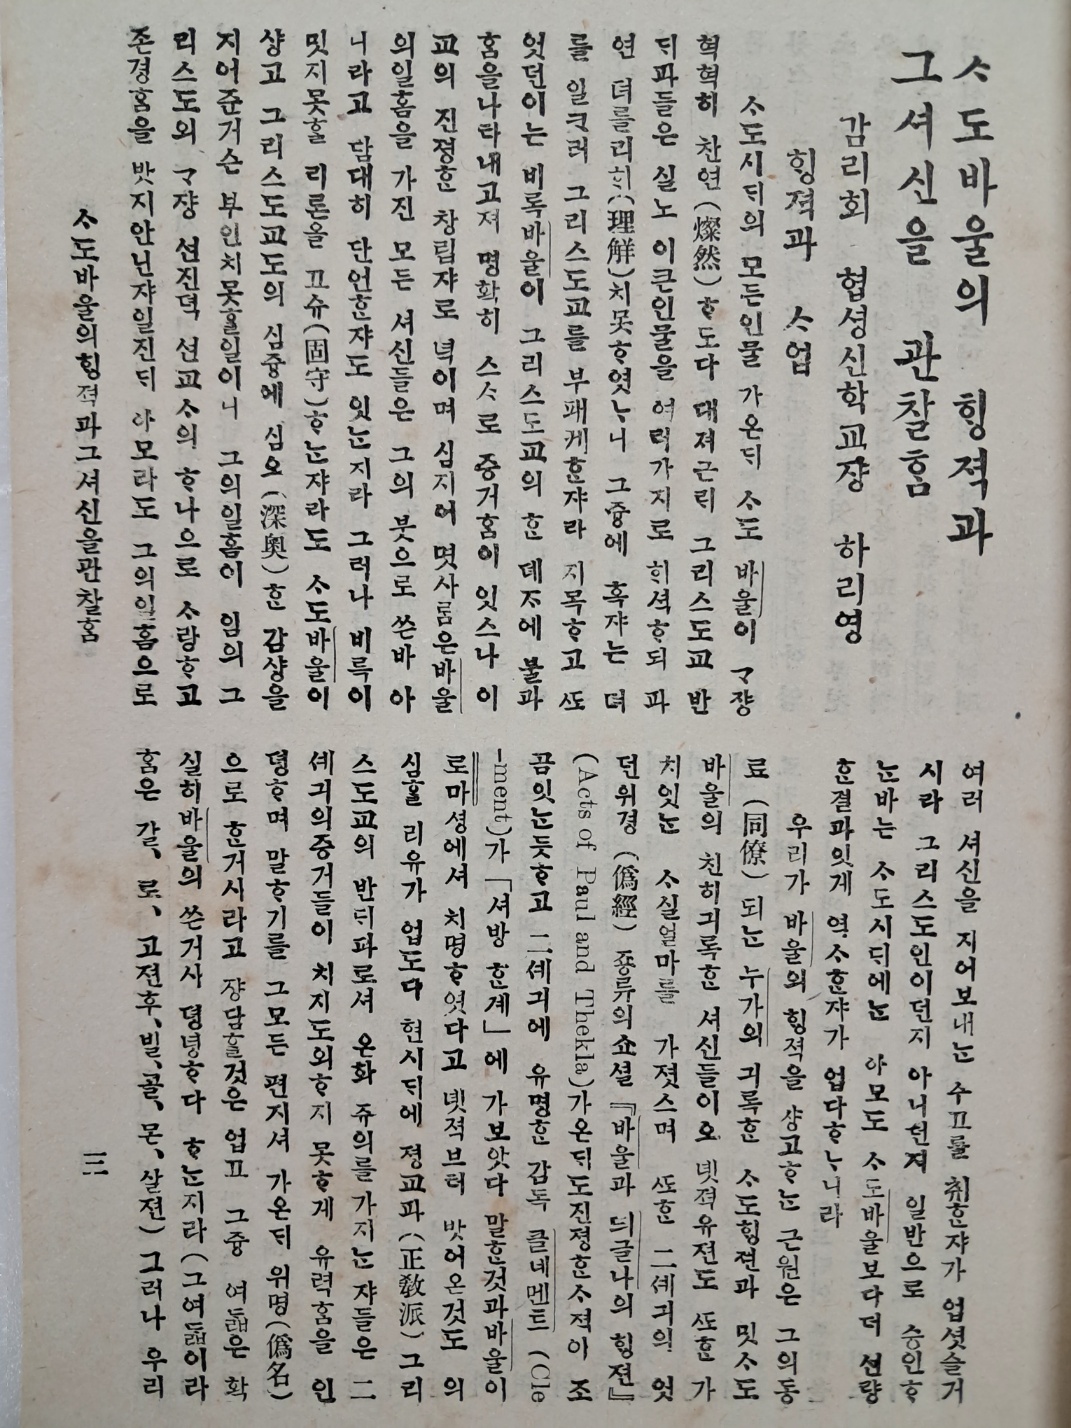 ᄉᆞ도바울의 ᄒᆡᆼ젹과
그셔신을 관찰홈
감리회 협셩신학교쟝 하리영
ᄒᆡᆼ젹과 ᄉᆞ업
ᄉᆞ도시ᄃᆡ의 모든인물 가온ᄃᆡ ᄉᆞ도 바울이 ᄀᆞ쟝
혁혁히 찬연(燦然)ᄒᆞ도다 대져근ᄅᆡ 그리스도교 반
ᄃᆡ파들은 실노 이큰인물을 여러가지로 ᄒᆡ셕ᄒᆞ되 파
연 뎌를리ᄒᆡ(理解)치못ᄒᆞ엿ᄂᆞ니 그즁에 혹쟈는 뎌
를 일ᄏᆞ러 그리스도교를 부패케ᄒᆞᆫ쟈라 지목ᄒᆞ고 ᄯᅩ
엇던이는 비록바울이 그리스도교의 ᄒᆞᆫ 뎨ᄌᆞ에 불과
홈을나타내고져 명확히 스ᄉᆞ로 증거홈이 잇스나 이
교의 진졍ᄒᆞᆫ 창립쟈로 녁이며 심지어 몃사ᄅᆞᆷ은바울
의일홈을 가진 모든 셔신들은 그의 붓으로 쓴바 아
니라고 담대히 단언ᄒᆞᆫ쟈도 잇ᄂᆞᆫ지라 그러나 비록이
밋지못ᄒᆞᆯ 리론올 고슈(固守)ᄒᆞᄂᆞᆫ쟈라도 ᄉᆞ도바울이
샹고 그리스도교도의 심즁에 심오(深奧)ᄒᆞᆫ 감샹을
지어준거슨 부인치못ᄒᆞᆯ일이니 그의일홈이 임의 그
리스도의 ᄀᆞ쟝 션진뎍 션교ᄉᆞ의 ᄒᆞ나으로 ᄉᆞ랑ᄒᆞ고
존경홈을 밧지안닌쟈일진ᄃᆡ 아모라도 그의일홈으로
여러 셔신을 지어보내ᄂᆞᆫ 수고를 취ᄒᆞᆫ쟈가 업셧슬거
시라 그리스도인이던지 아니던지 일반으로 승인ᄒᆞ
ᄂᆞᆫ바는 ᄉᆞ도시ᄃᆡ에ᄂᆞᆫ 아모도 ᄉᆞ도바울보다더 션량
ᄒᆞᆫ결과잇게 역ᄉᆞᄒᆞᆫ쟈가 업다ᄒᆞᄂᆞ니라
우리가 바울의 ᄒᆡᆼ젹을 샹고ᄒᆞᄂᆞᆫ 근원은 그의동
료(同僚)되ᄂᆞᆫ 누가의 긔록ᄒᆞᆫ ᄉᆞ도ᄒᆡᆼ젼과 밋ᄉᆞ도
바울의 친히긔록ᄒᆞᆫ 셔신들이오 녯젹유젼도 ᄯᅩᄒᆞᆫ 가
치잇ᄂᆞᆫ ᄉᆞ실얼마를 가졋스며 ᄯᅩᄒᆞᆫ 二셰긔의 엇
던위경(僞經)죵류의쇼셜『바울과 듸글나의 ᄒᆡᆼ젼』
(Acts of Paul and Thekla)가온ᄃᆡ도진졍ᄒᆞᆫᄉᆞ젹이 조
곰잇ᄂᆞᆫ듯ᄒᆞ고 二셰긔에 유명ᄒᆞᆫ 감독 클네멘트(Cle
-ment)가「셔방 ᄒᆞᆫ계」에 가보앗다 말ᄒᆞᆫ것과바울이
로마셩에셔 치명ᄒᆞ엿다고 녯젹브터 밧어온것도 의
심ᄒᆞᆯ 리유가 업도다 현시ᄃᆡ에 졍교파(正敎派)그리
스도교의 반ᄃᆡ파로셔 온화 쥬의를가지ᄂᆞᆫ 쟈들은 二
셰긔의증거들이 치지도외ᄒᆞ지 못ᄒᆞ게 유력홈을 인
뎡ᄒᆞ며 말ᄒᆞ기를 그모든 편지셔 가온ᄃᆡ 위명(僞名)
으로 ᄒᆞᆫ거시라고 쟝담ᄒᆞᆯ것은 업고 그즁 여ᄃᆞᆲ은 확
실히바울의 쓴거시 뎡녕ᄒᆞ다 ᄒᆞᄂᆞᆫ지라(그여ᄃᆞᆲ이라
홈은 갈、로、고젼후、빌、골、몬、살젼)그러나 우리
ᄉᆞ도바울의ᄒᆡᆼ젹과그셔신을관찰홈
三